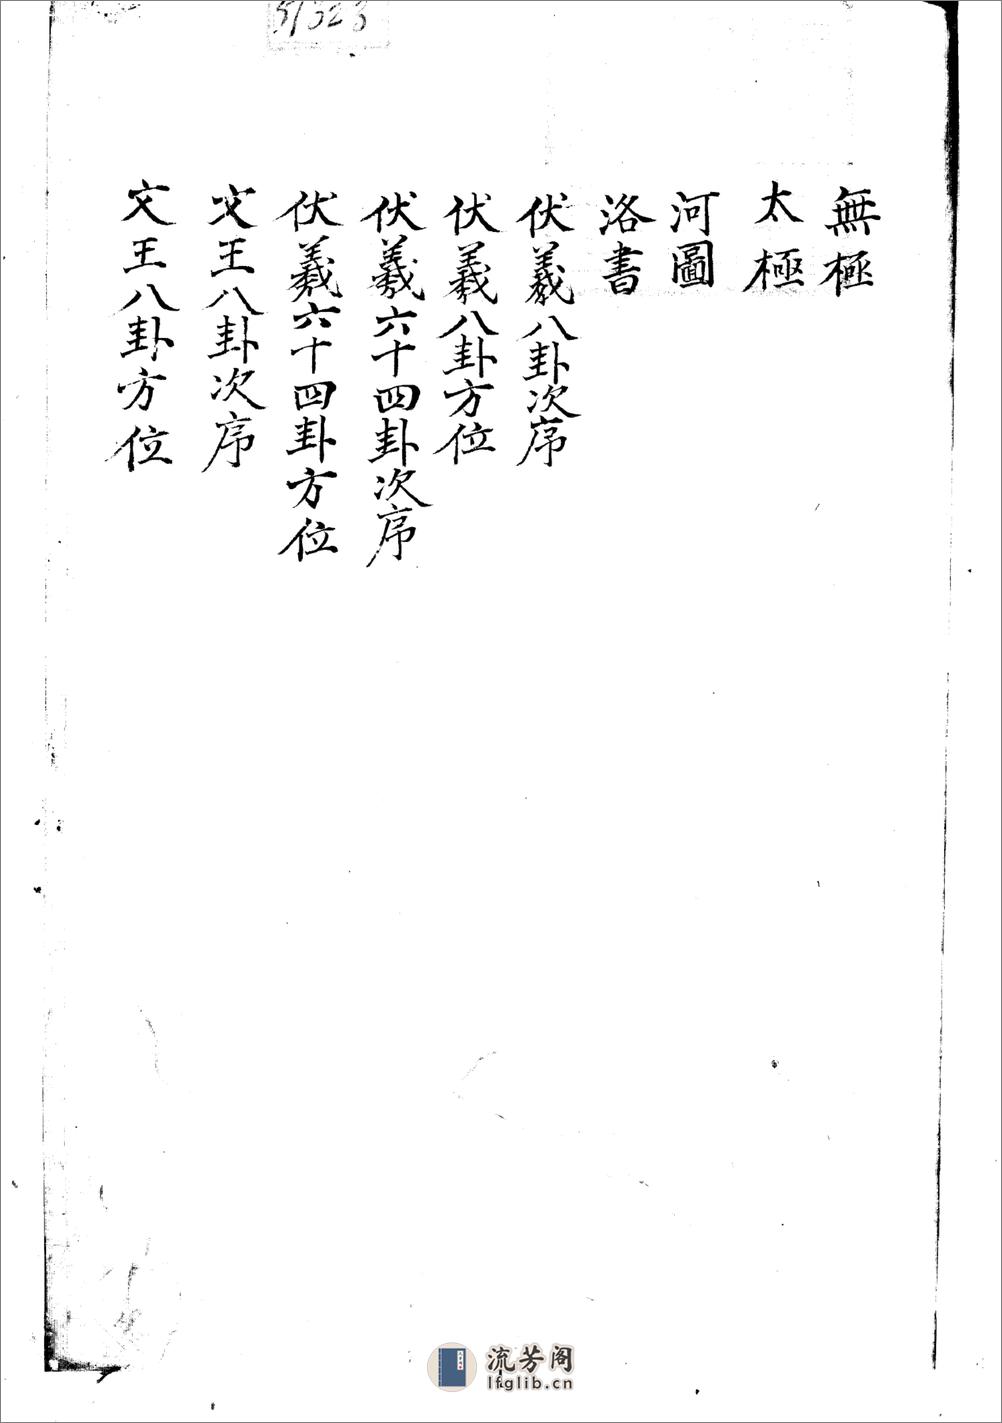 無極
太極
河圖
洛書
伏羲八卦次序
伏羲八卦方位
伏羲六十四卦次序
伏羲六十四卦方位
文王八卦次序
文王八卦方位
流芳阁
lfglib.cn